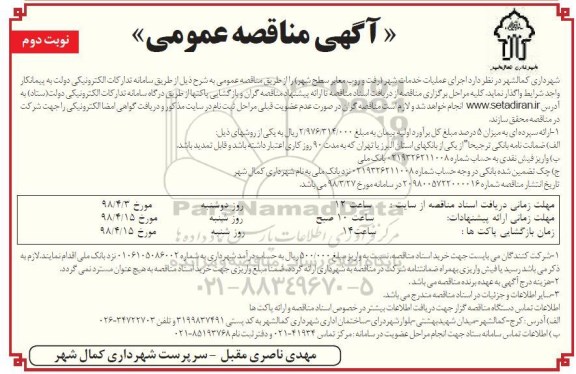 « آگهی مناقصه عمومی »
نوبت دوم
شهرداری کمالشهر در نظر دارد اجرای عملیات خدمات شهری رفت و روب معابر سطح شهر را از طریق مناقصه عمومی به شرح ذیل از طریق سامانه تدارکات الکترونیکی دولت به پیمانکار
واجد شرایط واگذار نماید. کلیه مراحل برگزاری مناقصه از دریافت اسناد مناقصه تا ارائه پیشنهاد مناقصه گران و بازگشایی پاکتها از طریق درگاه سامانه تدارکات الکترونیکی دولت (ستاد) به
آدرس www.setadiran.ir انجام خواهد شد و لازم است مناقصه گران در صورت عدم عضویت قبلی مراحل ثبت نام در سایت مذکور و دریافت گواهی امضا الکترونیکی را جهت شرکت
در مناقصه محقق سازند.
۱-ارائه سپرده‌ای به میزان ۵ درصد مبلغ کل برآورد اولیه پیمان به مبلغ ۲/۹۷۶/۳۱۴/۰۰۰ ریال به یکی از روشهای ذیل:
الف) ضمانت نامه بانکی ترجیحا" از یکی از بانکهای استان البرز یا تهران که به مدت ۹۰ روز کاری اعتبار داشته باشد و قابل تمدید باشد.
ب) واریز فیش نقدی به حساب شماره ۰۲۱۹۳۲۶۲۱۱۰۰۸ بانک ملی
ج) چک تضمین شده بانکی در وجه حساب شماره ۰۲۱۹۳۲۶۲۱۱۰۰۸ نزد بانک ملی به نام شهرداری کمال شهر
تاریخ انتشار مناقصه شماره ۲۰۹۸۰۰۵۷۲۲۰۰۰۰۱۶ در سامانه مورخ ۹۸/۳/۲۷ می باشد.
مهلت زمانی دریافت اسناد مناقصه از سایت : ساعت ۱۲ روز دوشنبه مورخ ۹۸/۴/۳
مهلت زمانی ارائه پیشنهادات: ساعت ۱۰ صبح روز شنبه مورخ ۹۸/۴/۱۵
زمان بازگشایی پاکت ها : ساعت۱۴ روز شنبه مورخ ۹۸/۴/۱۵
۱-شرکت کنندگان می بایست جهت خرید اسناد مناقصه، نسبت به واریز مبلغ ۵۰۰/۰۰۰ ریال به حساب درآمد شهرداری به شماره ۰۱۰۶۱۰۵۰۸۶۰۰۲ نزد بانک ملی اقدام نمایند.لازم به
ذکر می باشد رسید یا فیش واریزی بهمراه ضمانتنامه شرکت در مناقصه به شهرداری ارائه گردد، ضمنا مبلغ واریزی جهت خرید اسناد مناقصه به هیچ عنوان مسترد نمی گردد.
۲-هزینه درج آگهی به عهده برنده مناقصه می باشد.
۳-سایر اطلاعات و جزئیات در اسناد مناقصه مندرج می باشد.
اطلاعات تماس دستگاه مناقصه گزار جهت دریافت اطلاعات بیشتر در خصوص اسناد مناقصه و ارائه پاکت ها
الف) آدرس: کرج-کمالشهر-میدان شهید بهشتی-بلوار شهرداری-ساختمان اداری شهرداری کمالشهر به کد پستی ۳۱۹۹۸۳۷۴۹۱ و تلفن ۳۴۷۲۲۷۰۳-۰۲۶
ب) اطلاعات تماس سامانه ستاد جهت انجام مراحل عضویت در سامانه: مرکز تماس ۴۱۹۳۴-۰۲۱ و دفتر ثبت نام ۸۵۱۹۳۷۶۸-۰۲۱
مهدی ناصری مقبل - سرپرست شهرداری کمال شهر
ParsNamadData
۰۲۱-۸۸۳۴۹۶۷۰-۵